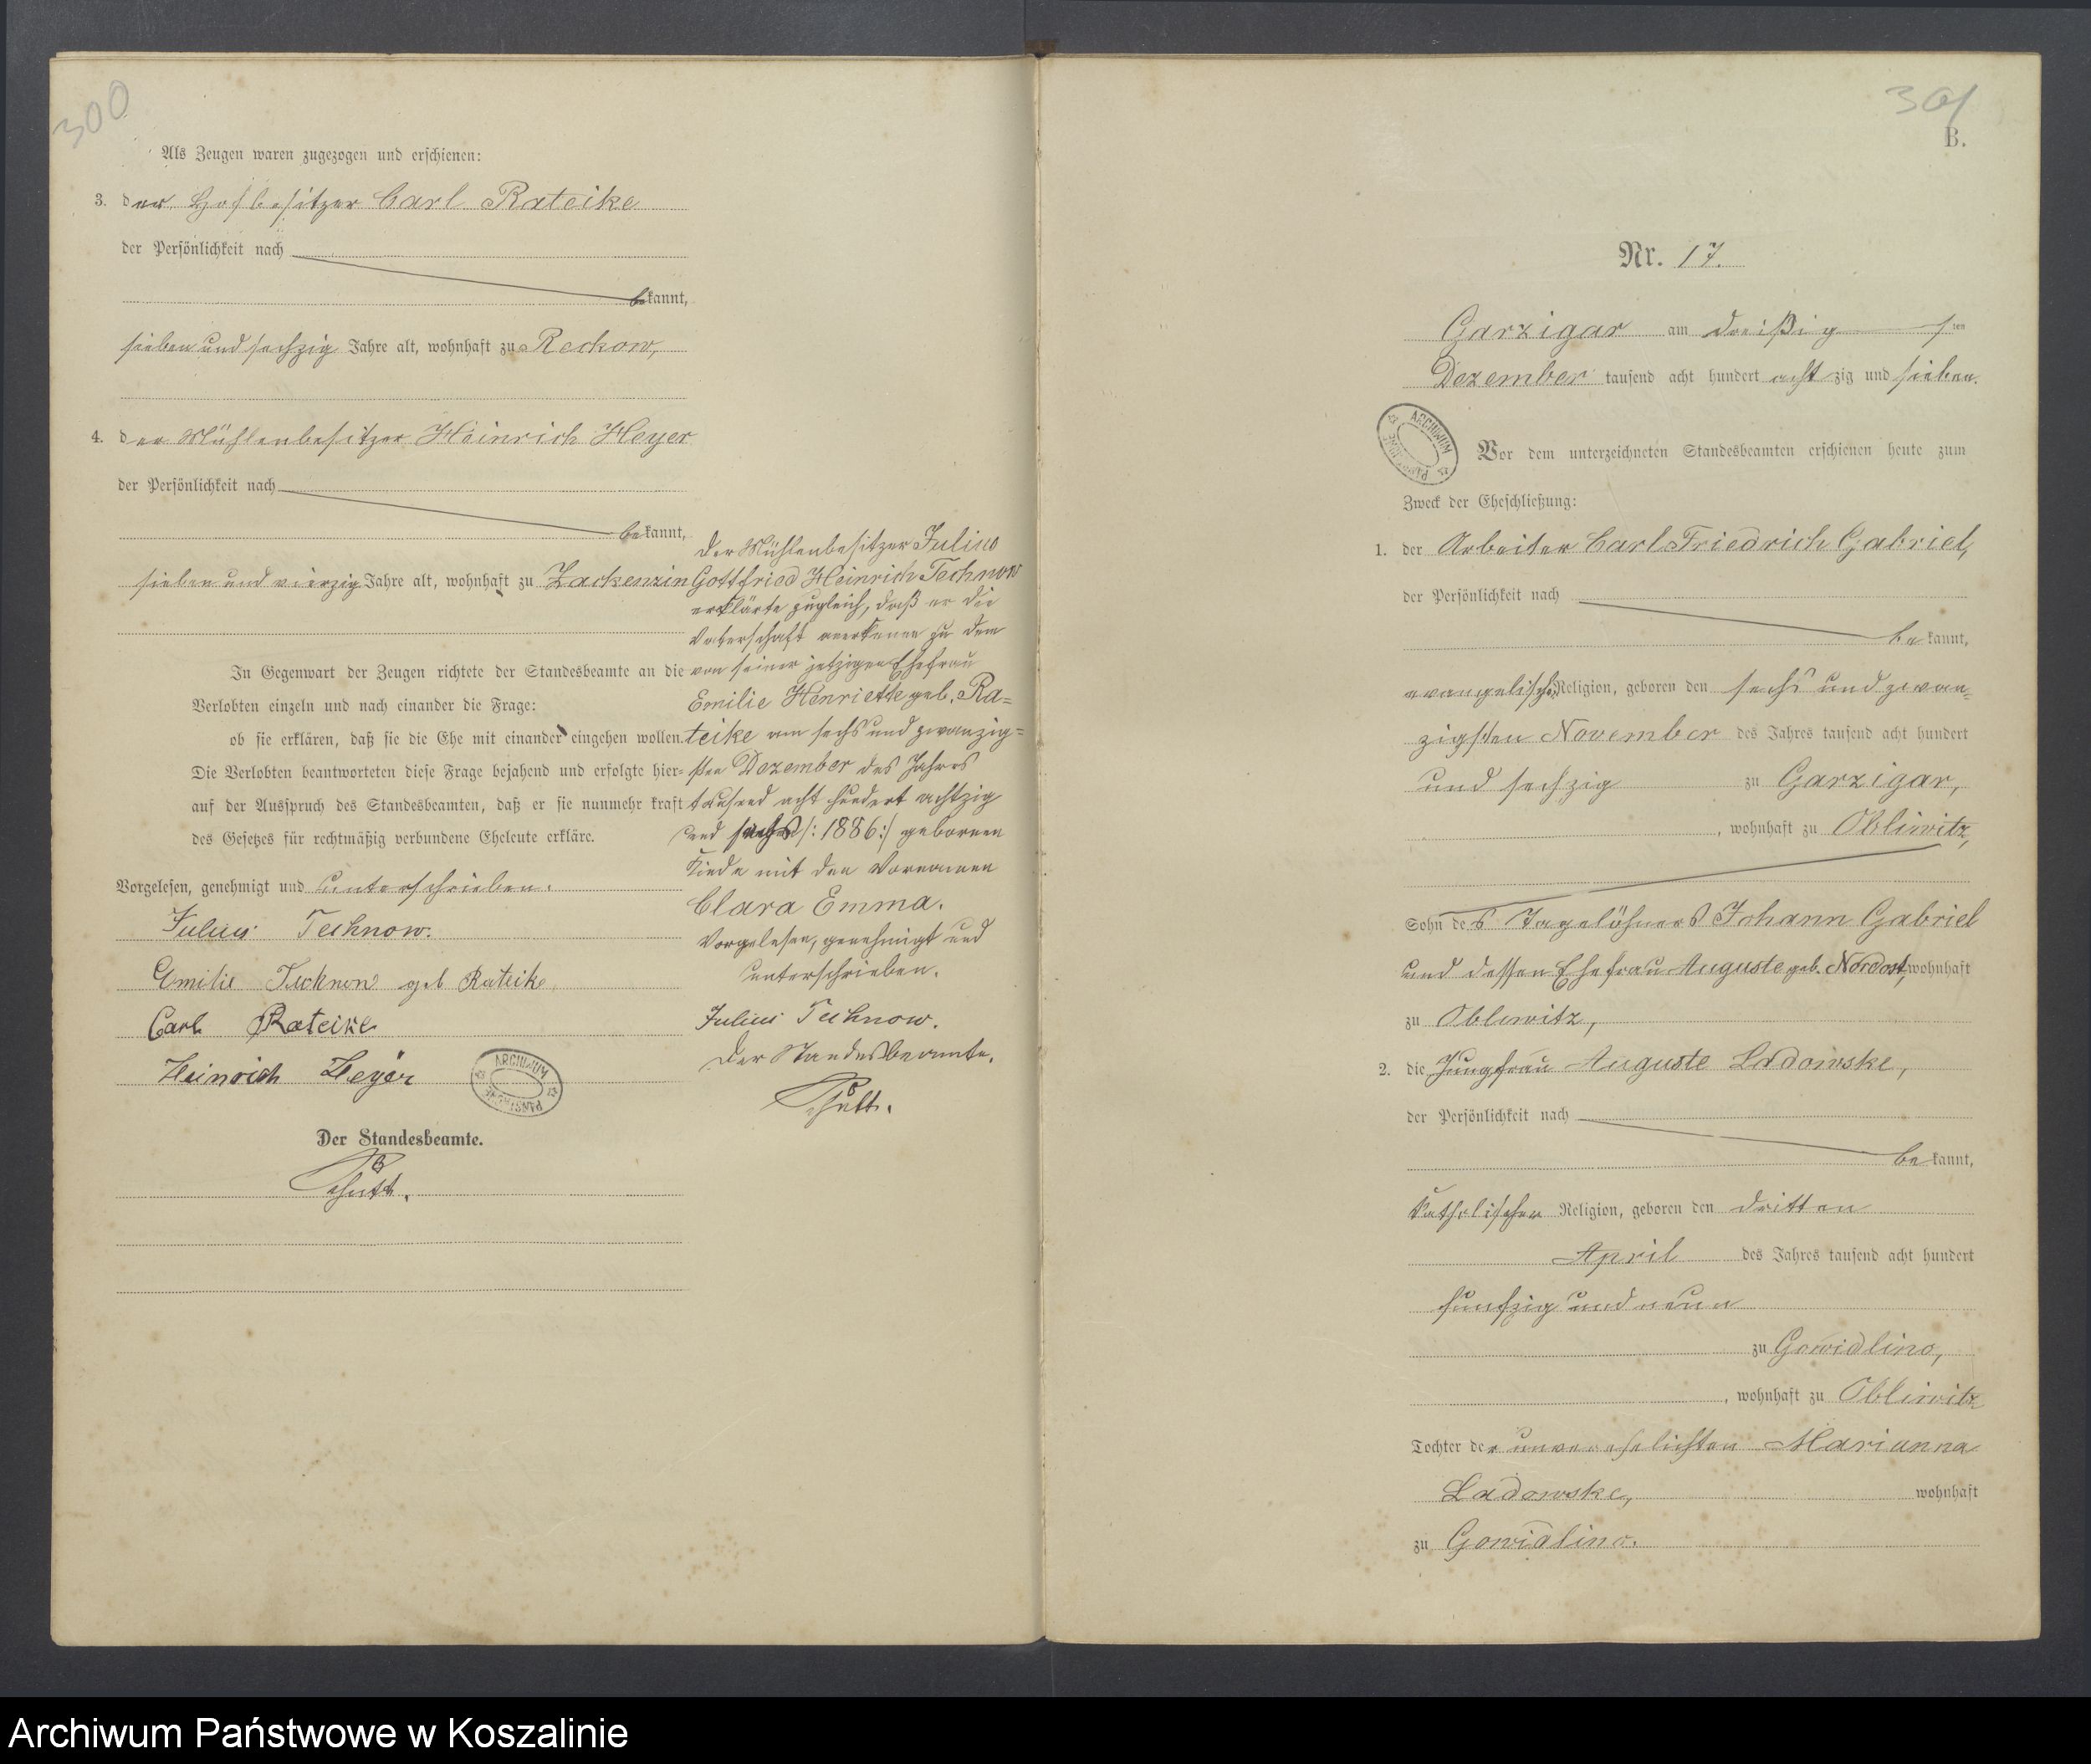 300
Als Zeugen waren zugezogen und erschienen:
3. der Hofbesitzer Carl Rateike
der Persönlichkeit nach
bekannt,
sieben und sechzig Jahre alt, wohnhaft zu Reckow,
4. der Mühlenbesitzer Heinrich Heyer
der Persönlichkeit nach
bekannt,
sieben und vierzig Jahre alt, wohnhaft zu Zackenzin
In Gegenwart der Zeugen richtete der Standesbeamte an die
Verlobten einzeln und nach einander die Frage:
ob sie erklären, daß sie die Ehe mit einander eingehen wollen.
Die Verlobten beantworteten diese Frage bejahend und erfolgte hier-
auf der Ausspruch des Standesbeamten, daß er sie nunmehr kraft
des Gesetzes für rechtmäßig verbundene Eheleute erkläre.
Vorgelesen, genehmigt und unterschrieben.
Julius Technow.
Emilie Technow geb Rateike
Carl Rateike
Heinrich Heyer
ARCHIWUM PAŃSTWOWE
Der Standesbeamte.
Der Mühlenbesitzer Julius
Gottfried Heinrich Technow
erklärte zugleich, daß er die
Vaterschaft anerkenne zu dem
von seiner jetzigen Ehefrau
Emilie Henriette geb. Ra=
teike am sechs und zwanzig=
sten Dezember des Jahres
tausend acht hundert achtzig
und sechs /: 1886 :/ geborenen
Kinde mit den Vornamen
Clara Emma.
Vorgelesen, genehmigt und
unterschrieben.
Julius Technow.
Der Standesbeamte.
301
B.
Nr. 17.
Garzigar am dreißig sten
Dezember tausend acht hundert achtzig und sieben.
ARCHIWUM PAŃSTWOWE
Vor dem unterzeichneten Standesbeamten erschienen heute zum
Zweck der Eheschließung:
1. der Arbeiter Carl Friedrich Gabriel,
der Persönlichkeit nach
bekannt,
evangelischer Religion, geboren den sechs und zwan=
zigsten November des Jahres tausend acht hundert
und sechzig zu Garzigar,
, wohnhaft zu Obliwitz,
Sohn des Tagelöhners Johann Gabriel
und dessen Ehefrau Auguste geb. Nordost, wohnhaft
zu Obliwitz,
2. die Jungfrau Auguste Ladowske,
der Persönlichkeit nach
bekannt,
katholischer Religion, geboren den dritten
April des Jahres tausend acht hundert
fünfzig und neun
zu Gowidlino,
, wohnhaft zu Obliwitz
Tochter der unverehelichten Marianna
Ladowske, wohnhaft
zu Gowidlino.
Archiwum Państwowe w Koszalinie